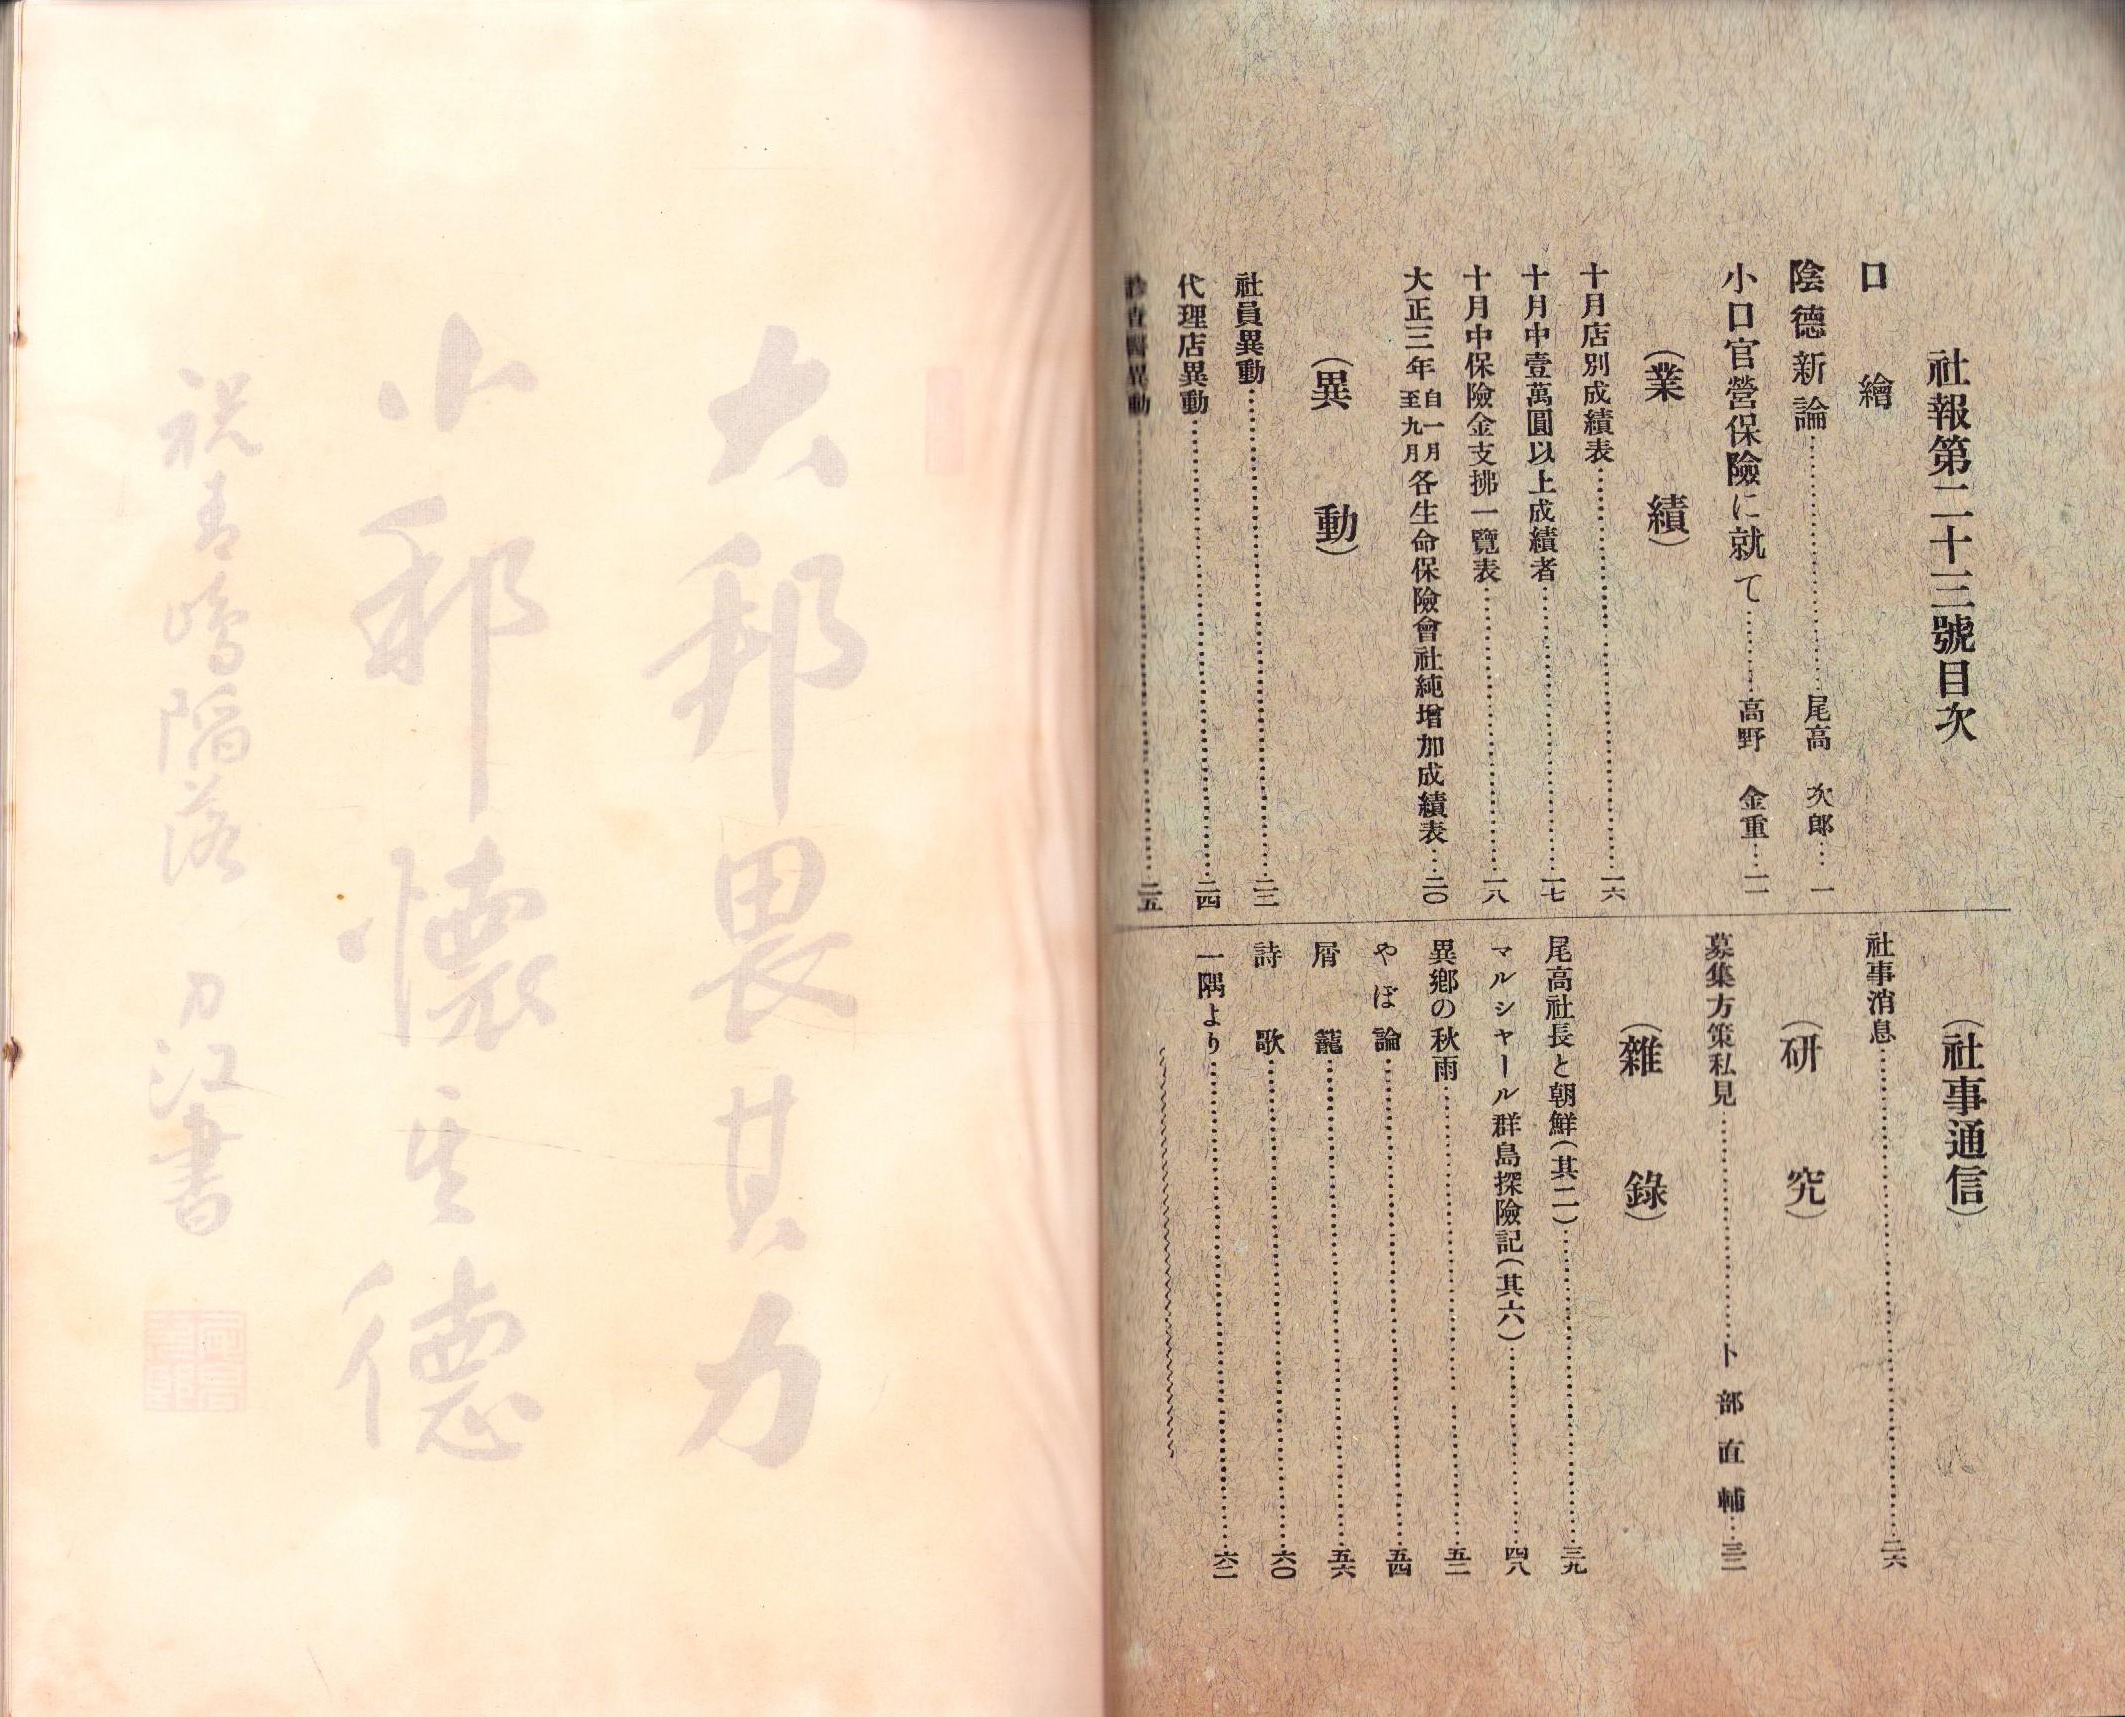 社報第二十三號目次
口繪
陰德新論……尾高次郎…一
小口官營保險に就て……高野金重…一一
(業績)
十月店別成績表……一六
十月中壹萬圓以上成績者……一七
十月中保險金支拂一覽表……一八
大正三年自一月至九月各生命保險會社純增加成績表…二〇
(異動)
社員異動……二三
代理店異動……二四
診査醫異動……二五
(社事通信)
社事消息……二六
(研究)
募集方策私見……卜部直輔…三二
(雜錄)
尾高社長と朝鮮(其二)……三九
マルシャール群島探險記(其六)……四八
異鄉の秋雨……五二
やぼ論……五四
屑籠……五六
詩歌……六〇
一隅より……六二
大邦畏其力
小邦懷其德
祝靑島陷落 刀江書